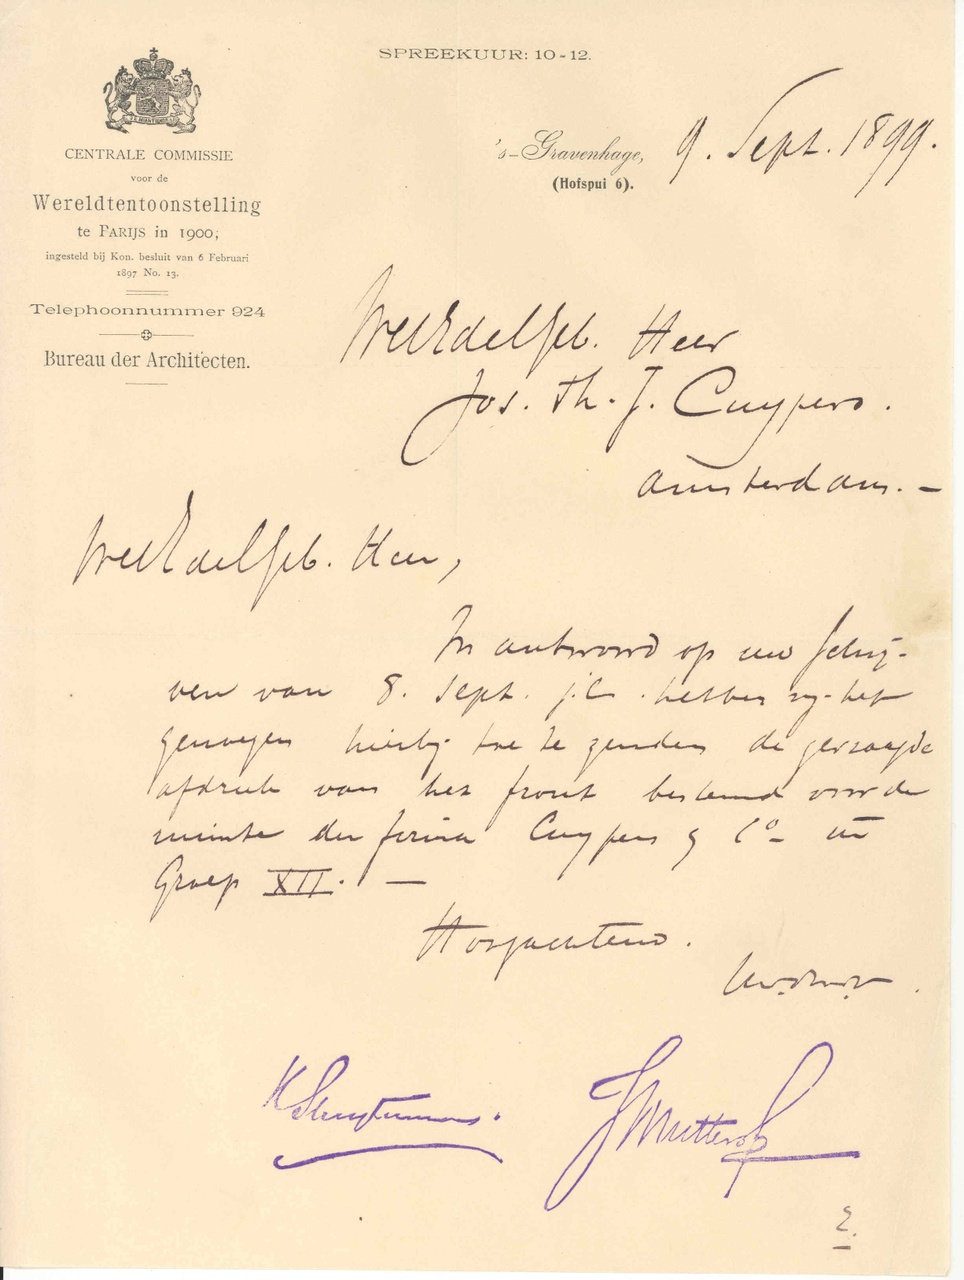 SPREEKUUR: 10-12.
CENTRALE COMMISSIE
voor de
Wereldtentoonstelling
te PARIJS in 1900;
ingesteld bij Kon. besluit van 6 Februari
1897 No. 13.
Telephoonnummer 924
Bureau der Architecten.
's-Gravenhage, 9. Sept. 1899.
(Hofspui 6).
WelEdelGeb. Heer
Jos. Th. J. Cuypers.
Amsterdam. -
WelEdelGeb. Heer,
In antwoord op uw schrij-
ven van 8. Sept. j.l. hebben wij het
genoegen hierbij toe te zenden de gevraagde
afdruk van het front bestemd voor de
ruimte der firma Cuypers & Co - in
Groep XII. -
Hoogachtend.
Uw.dw.dr.
K Sluyterman.
J M Mutters Jr
2.